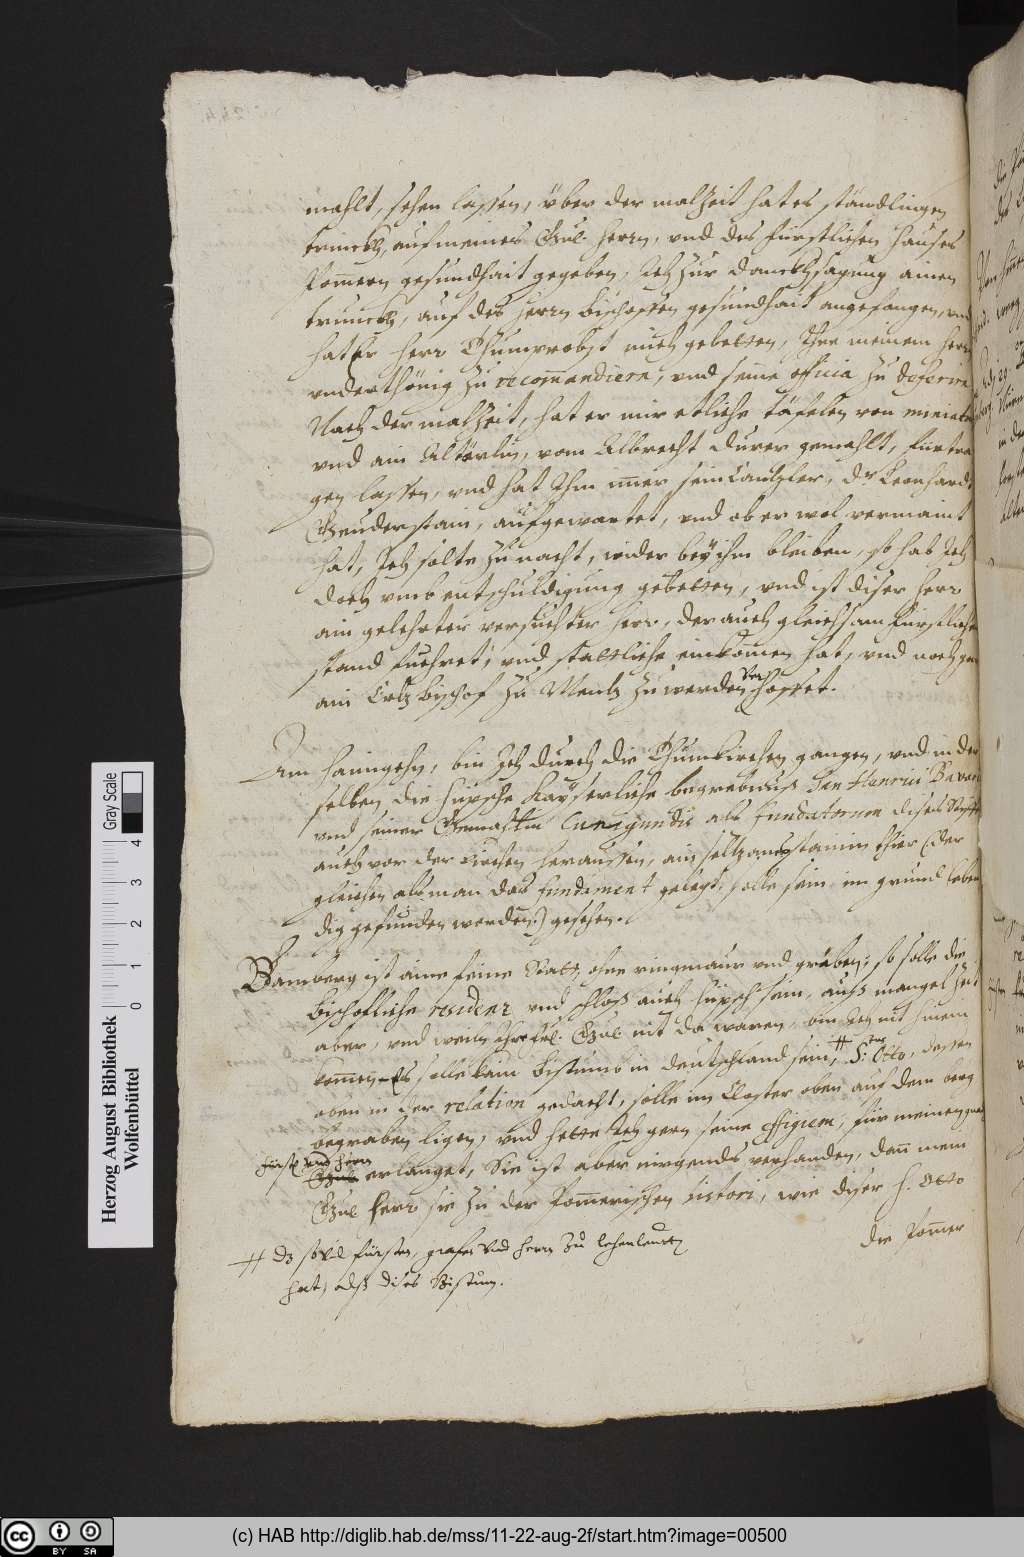 mahlt, sehen lassen, über der malzeit hat es ständlingen
trincken, auf meines Gnd. herrn, vnd des fürstlichen hauses
Pomern gesundhait gegeben, Ich zur dancksagung ainen
trunckh, auf des herrn Bischoffen gesundhait angefangen, vnd
hat Er herr Thumprobst mich gebetten, Ihne meinem herrn
vnderthönig zu recomandieren, vnd seine officia zu deferiren
Nach der malzeit, hat er mir etliche täfelen von miniatur
vnd ain Altärlin, vom Albrecht Durer gemahlt, fürtra
gen lassen, vnd hat Ihm sein Cantzler, Dr. Leonhardt
aufgewartet, vnd ob er wol vermaint
hat, Ich solte zu nacht, wider bey ihm bleiben, so hab Ich
doch vmb entschuldigung gebetten, vnd ist diser herr
ain gelehrter versuchter herr, der auch gleichsam fürstlichen
stand fuehret, vnd stattliche einkomen hat, vnd noch gar
ain Ertzbischof zu Mentz zu werden verhoffet.
Am haimgehn, bin Ich durch die Thumkirchen gangen, vnd in der
selben die hüpsche Kayserliche begrebnus Henrici Bavari
vnd seiner Gemahlin Cunigundis als fundatorum dises Stiffts
auch vor der kirchen heraussen, ain seltzams stainin thier (der
gleichen als man das fundament gelegt, solle sein im grund leben
dig gefunden worden) gesehen.
Bamberg ist aine feine Statt, ohne ringmaur vnd gräben, so solle die
Bischofliche residenz vnd schloß auch hüpsch sein, auß mangel zeit
aber, vnd weiln Ihr frl. Gnd. nit da waren, bin Ich nit hinein
komen. Es solle kain Bistumb in deutschland sein, # S. Otto, dessen
oben in der relation gedacht, solle im Closter oben auf dem berg
begraben ligen, vnd hette Ich gern seine effigiem, für meinen gned.
fürst. vnd herrn
erlanget, Sie ist aber nirgends verhanden, dann mein
Gnd. herr sie zu der Pomerischen histori, wie diser S. Otto
die Pomer
# dz so vil fürsten, grafen vnd herrn zu lehenleuten
hat, alß dises Bistum.
Herzog August Bibliothek
Wolfenbüttel
0 1 2 3 4 Gray Scale
cc BY SA
(c) HAB http://diglib.hab.de/mss/11-22-aug-2f/start.htm?image=00500